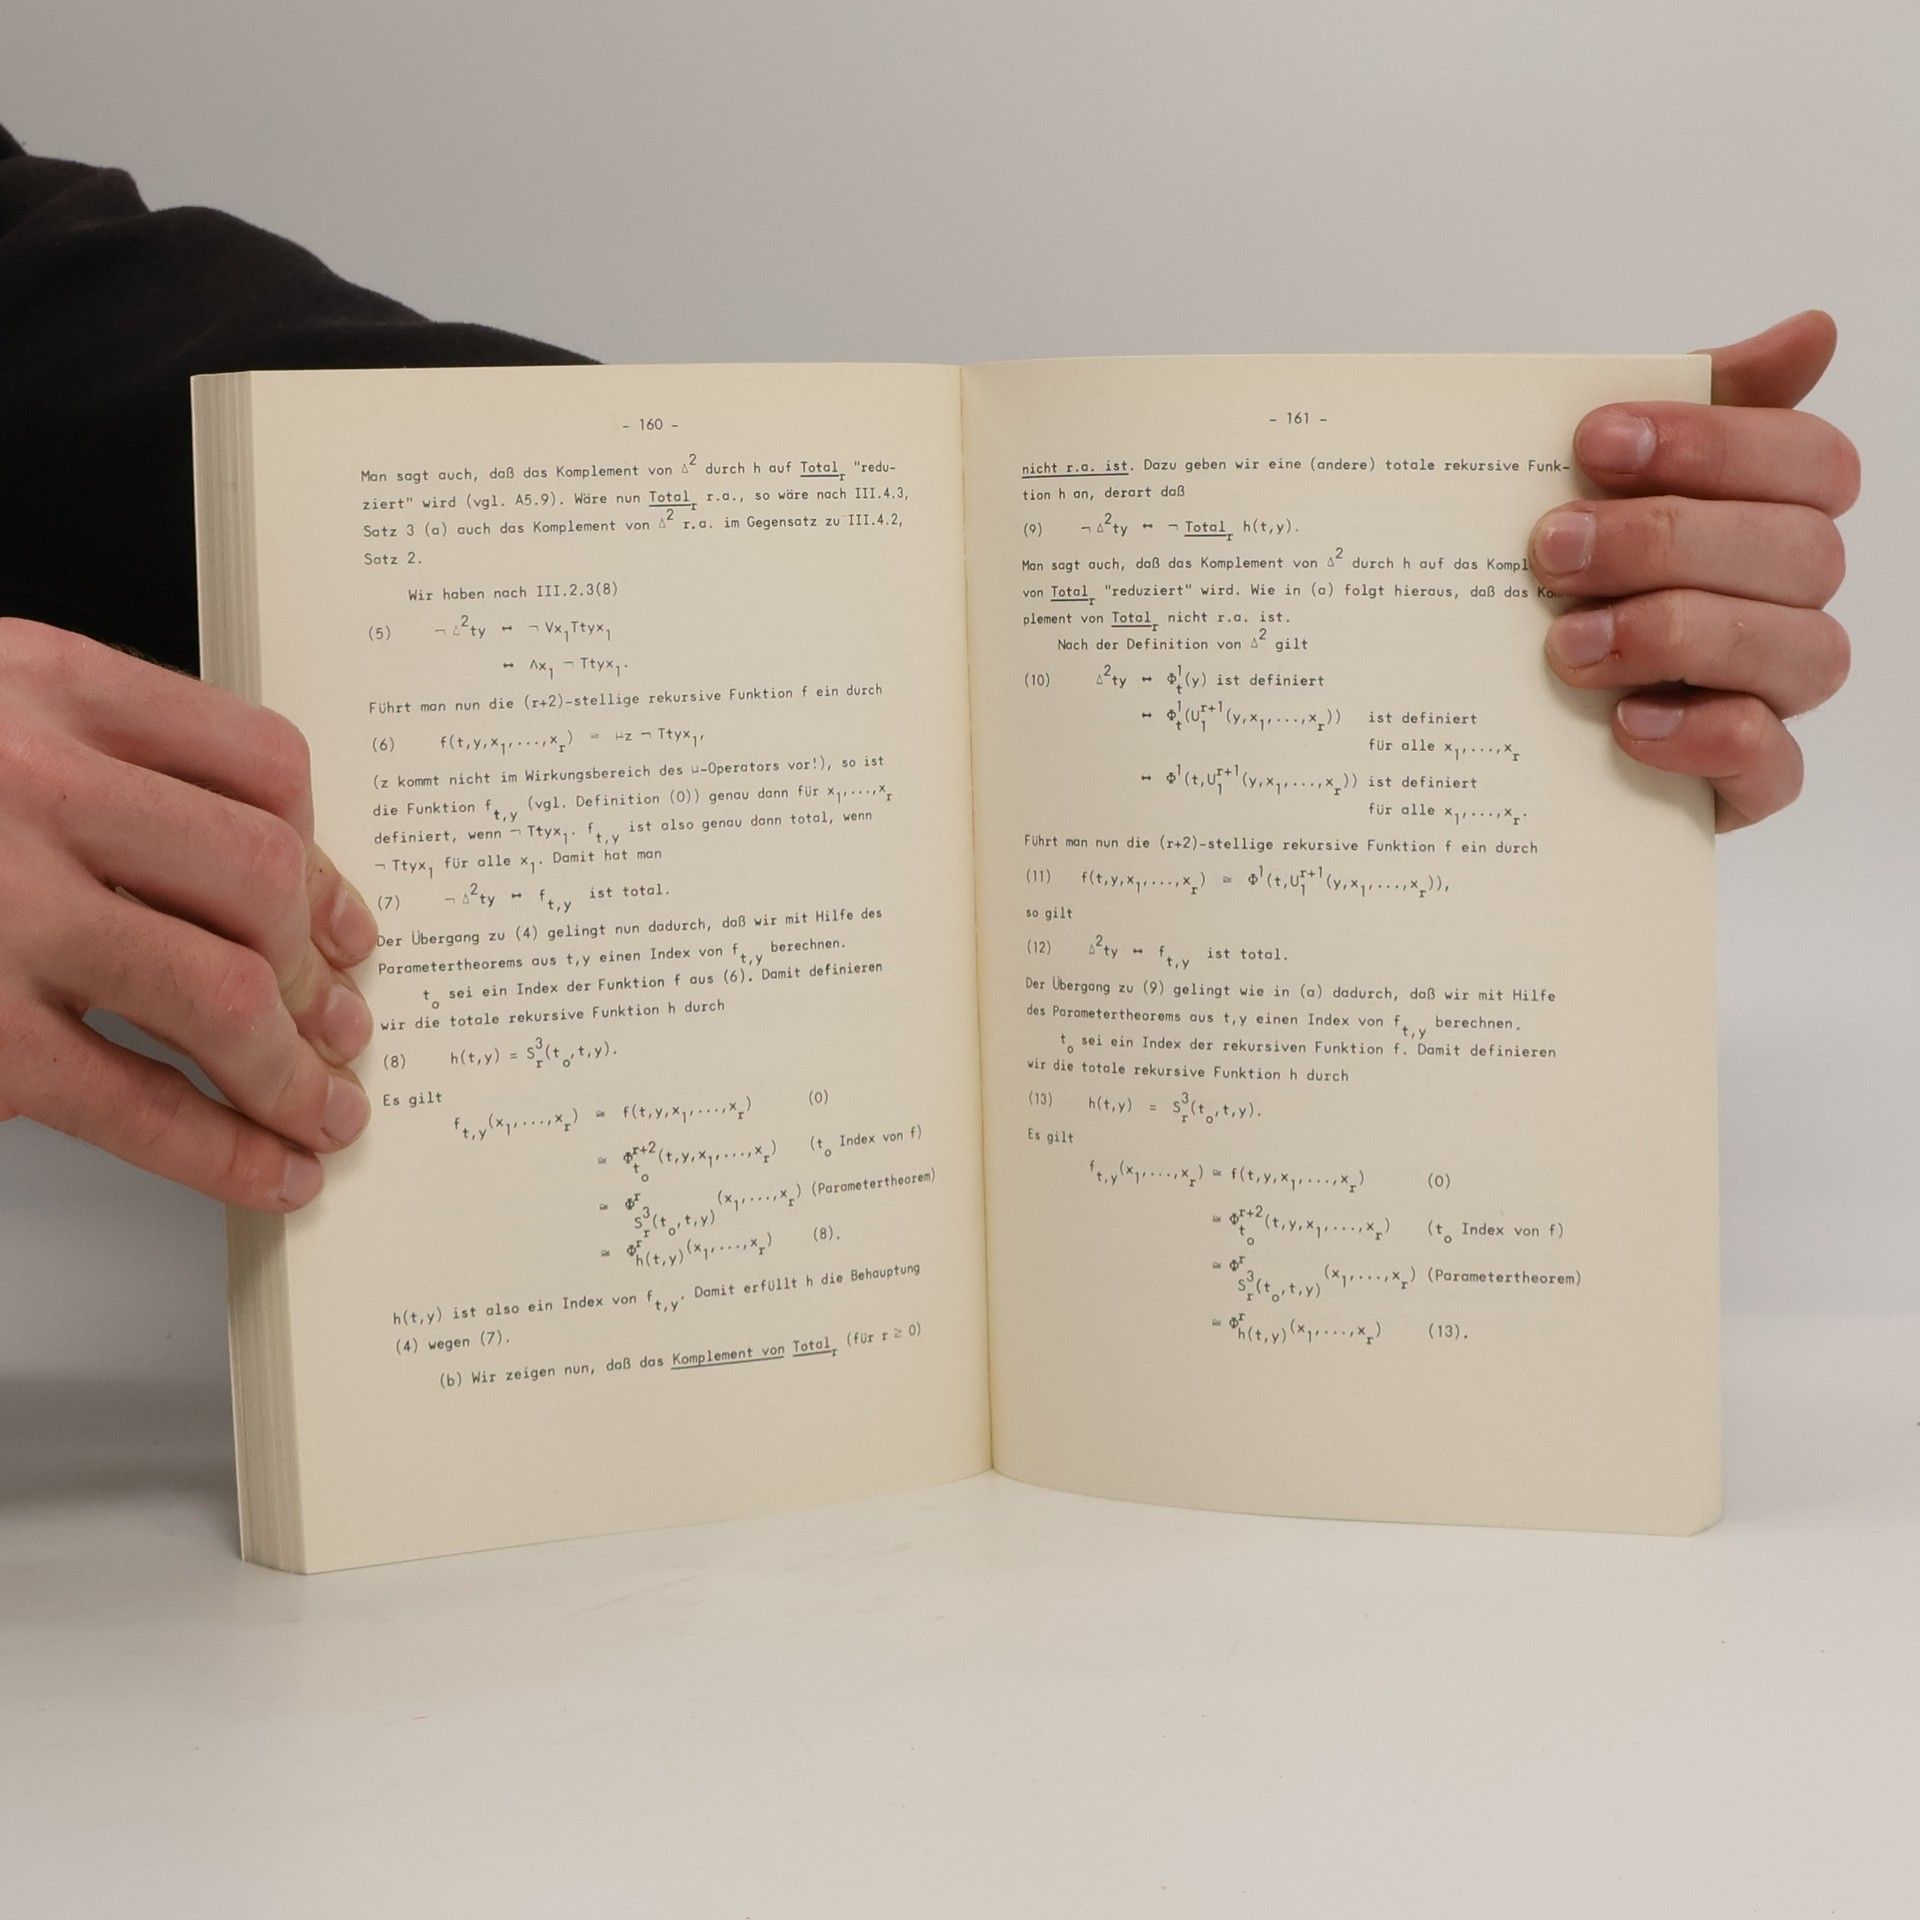 - 160 -
Man sagt auch, daß das Komplement von Δ² durch h auf Total_r "redu-
ziert" wird (vgl. A5.9). Wäre nun Total_r r.a., so wäre nach III.4.3,
Satz 3 (a) auch das Komplement von Δ² r.a. im Gegensatz zu III.4.2,
Satz 2.
Wir haben nach III.2.3(8)
(5) ¬ Δ²ty ↔ ¬ Vx₁Ttyx₁
↔ Λx₁ ¬ Ttyx₁.
Führt man nun die (r+2)-stellige rekursive Funktion f ein durch
(6) f(t,y,x₁,...,x_r) ≅ μz ¬ Ttyx₁,
(z kommt nicht im Wirkungsbereich des μ-Operators vor!), so ist
die Funktion f_t,y (vgl. Definition (0)) genau dann für x₁,...,x_r
definiert, wenn ¬ Ttyx₁. f_t,y ist also genau dann total, wenn
¬ Ttyx₁ für alle x₁. Damit hat man
(7) ¬ Δ²ty ↔ f_t,y ist total.
Der Übergang zu (4) gelingt nun dadurch, daß wir mit Hilfe des
Parametertheorems aus t,y einen Index von f_t,y berechnen.
t₀ sei ein Index der Funktion f aus (6). Damit definieren
wir die totale rekursive Funktion h durch
(8) h(t,y) = S³_r(t₀,t,y).
Es gilt
f_t,y(x₁,...,x_r) ≅ f(t,y,x₁,...,x_r) (0)
≅ Φ^r+2_t₀(t,y,x₁,...,x_r) (t₀ Index von f)
≅ Φ^r_S³_r(t₀,t,y)(x₁,...,x_r) (Parametertheorem)
≅ Φ^r_h(t,y)(x₁,...,x_r) (8).
h(t,y) ist also ein Index von f_t,y. Damit erfüllt h die Behauptung
(4) wegen (7).
(b) Wir zeigen nun, daß das Komplement von Total_r (für r ≥ 0)
- 161 -
nicht r.a. ist. Dazu geben wir eine (andere) totale rekursive Funk-
tion h an, derart daß
(9) ¬ Δ²ty ↔ ¬ Total_r h(t,y).
Man sagt auch, daß das Komplement von Δ² durch h auf das Kompl
von Total_r "reduziert" wird. Wie in (a) folgt hieraus, daß das Ko
plement von Total_r nicht r.a. ist.
Nach der Definition von Δ² gilt
(10) Δ²ty ↔ Φ¹_t(y) ist definiert
↔ Φ¹_t(U^r+1_1(y,x₁,...,x_r)) ist definiert
für alle x₁,...,x_r
↔ Φ¹(t,U^r+1_1(y,x₁,...,x_r)) ist definiert
für alle x₁,...,x_r.
Führt man nun die (r+2)-stellige rekursive Funktion f ein durch
(11) f(t,y,x₁,...,x_r) ≅ Φ¹(t,U^r+1_1(y,x₁,...,x_r)),
so gilt
(12) Δ²ty ↔ f_t,y ist total.
Der Übergang zu (9) gelingt wie in (a) dadurch, daß wir mit Hilfe
des Parametertheorems aus t,y einen Index von f_t,y berechnen.
t₀ sei ein Index der rekursiven Funktion f. Damit definieren
wir die totale rekursive Funktion h durch
(13) h(t,y) = S³_r(t₀,t,y).
Es gilt
f_t,y(x₁,...,x_r) ≅ f(t,y,x₁,...,x_r) (0)
≅ Φ^r+2_t₀(t,y,x₁,...,x_r) (t₀ Index von f)
≅ Φ^r_S³_r(t₀,t,y)(x₁,...,x_r) (Parametertheorem)
≅ Φ^r_h(t,y)(x₁,...,x_r) (13).